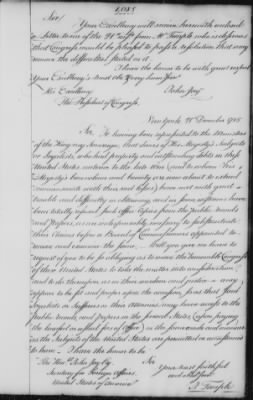 Sir/
Your Excellency will receive herewith enclosed
a Letter to me of the 21st inst from Mr Temple who is desirous
that Congress would be pleased to pass Resolution that may
remove the difficulties stated in it.
I have the honor to be with great respect
Your Excellency's Most Obt & very hum Serv
His Excellency John Jay
The President of Congress.
New York 21 December 1785
Sir, It having been represented to the Ministers
of the King my Sovereign, that divers of His Majesty's Subjects
or Loyalists, who had property and outstanding debts in these
United States anterior to the late War, (and to whom His
Majesty's benevolence and bounty are now about to extend
commensurate with their real losses) have met with great
trouble and difficulty in obtaining, and in some instances have
been totally refused such office Copies from the public Records
and Papers, as are indispensably necessary to substantiate
their Claims before a Board of Commissioners appointed to
and examine the same. Will you give me leave to
request of you to be so obliging as to move the Honorable Congress
of these United States to take the matter into consideration
and to do therein, as in their wisdom and justice may
appear to be fit and proper upon the occasion, that such
Loyalists or Sufferers or their Attornies may have access to the
public records and papers in the several States (upon paying
the lawful or usual fees of Office) in the same mode and manner
as the Subjects of the United States are permitted or accustomed
to have. I have the honor to be
Sir
The Honble John Jay Esqr
Secretary for Foreign Affairs
United States of America
Your most faithful
and
J. Temple